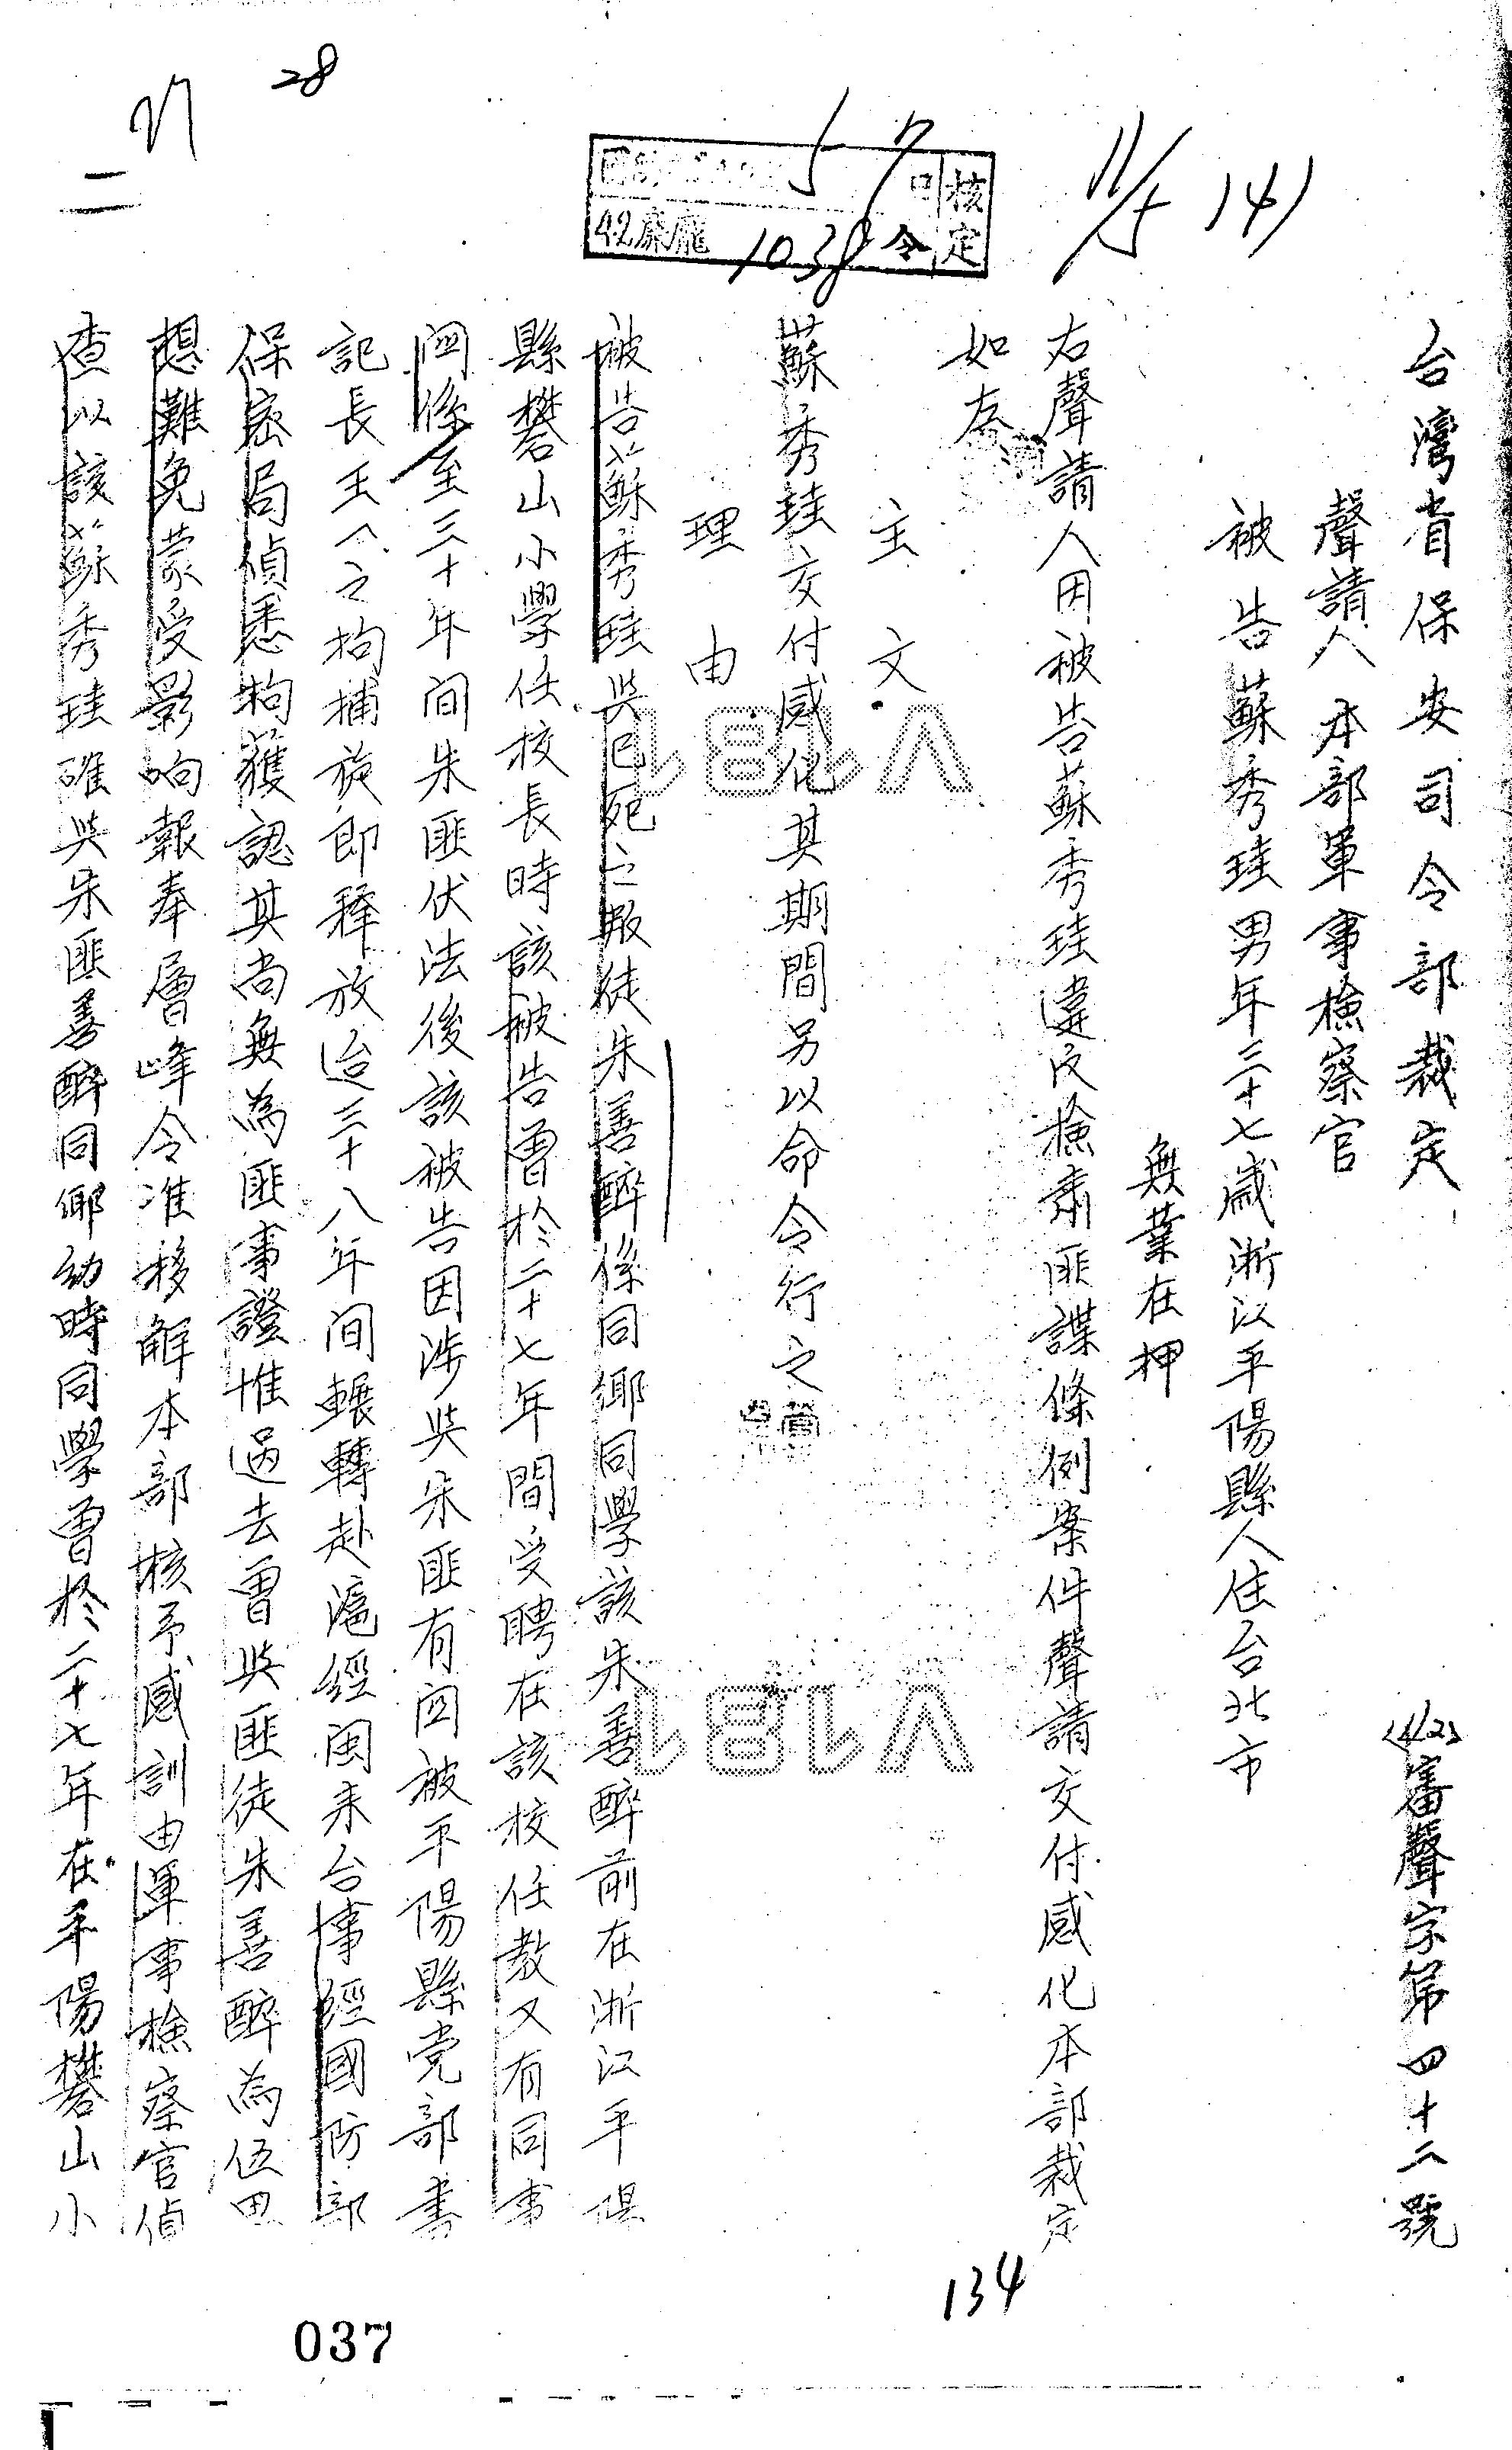 28
二
核定
42
1038
令
台灣省保安司令部裁定
(42)審聲字第四十二號
聲請人 本部軍事檢察官
被告蘇秀珪男年三十七歲浙江平陽縣人住台北市
無業在押
右聲請人因被告蘇秀珪違反檢肅匪諜條例案件聲請交付感化本部裁定
如左
主文
蘇秀珪交付感化其期間另以命令行之
理由
被告蘇秀珪與已死之叛徒朱善醉係同鄉同學該朱善醉前在浙江平陽
縣礬山小學任校長時該被告曾於二十七年間受聘在該校任教又有同事
関係至三十年间朱匪伏法後該被告因涉與朱匪有関被平陽縣党部書
記長王人之拘捕旋即釋放迨三十八年间輾轉赴滬經闽来台事經國防部
保密局偵悉拘獲認其尚無為匪事證惟過去曾與匪徒朱善醉為伍思
想難免蒙受影响報奉層峰令准移解本部核予感訓由軍事檢察官偵
查以該蘇秀珪確與朱匪善醉同鄉幼時同學曾於二十七年在平陽礬山小
V181
V181
134
037